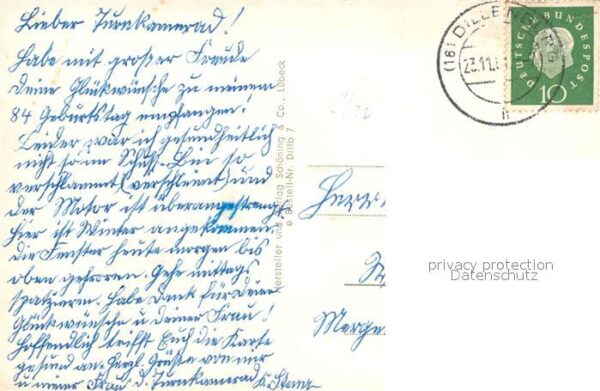 Lieber Turnkamerad!
Habe mit großer Freude
deine Glückwünsche zu meinem
84 Geburtstag empfangen!
Leider war ich gesundheitlich
nicht so im Schuß. Bin so
verschlammt (verschleimt) und
der Motor ist überangestrengt.
Hier ist Winter angekommen
die Fenster heute morgen bis
oben gefroren. Gehe mittags
spatzieren. Habe Dank für deine
Glückwünsche u deiner Frau!
Hoffendlich trifft Euch die Karte
gesund an. Herzl. Grüße von mir
u meiner Frau d. Turnkamerad
Hersteller und Verlag Schöning & Co., Lübeck
Bestell-Nr. Dillb 7
(16) DILLEN
23.11.
DEUTSCHE BUNDESPOST
10
Herrn
Merge
privacy protection
Datenschutz